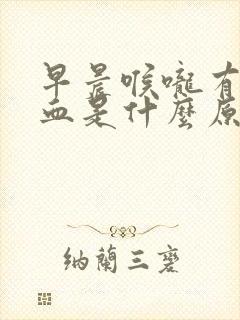 早晨喉嚨有
血是什麼原
納蘭三磬